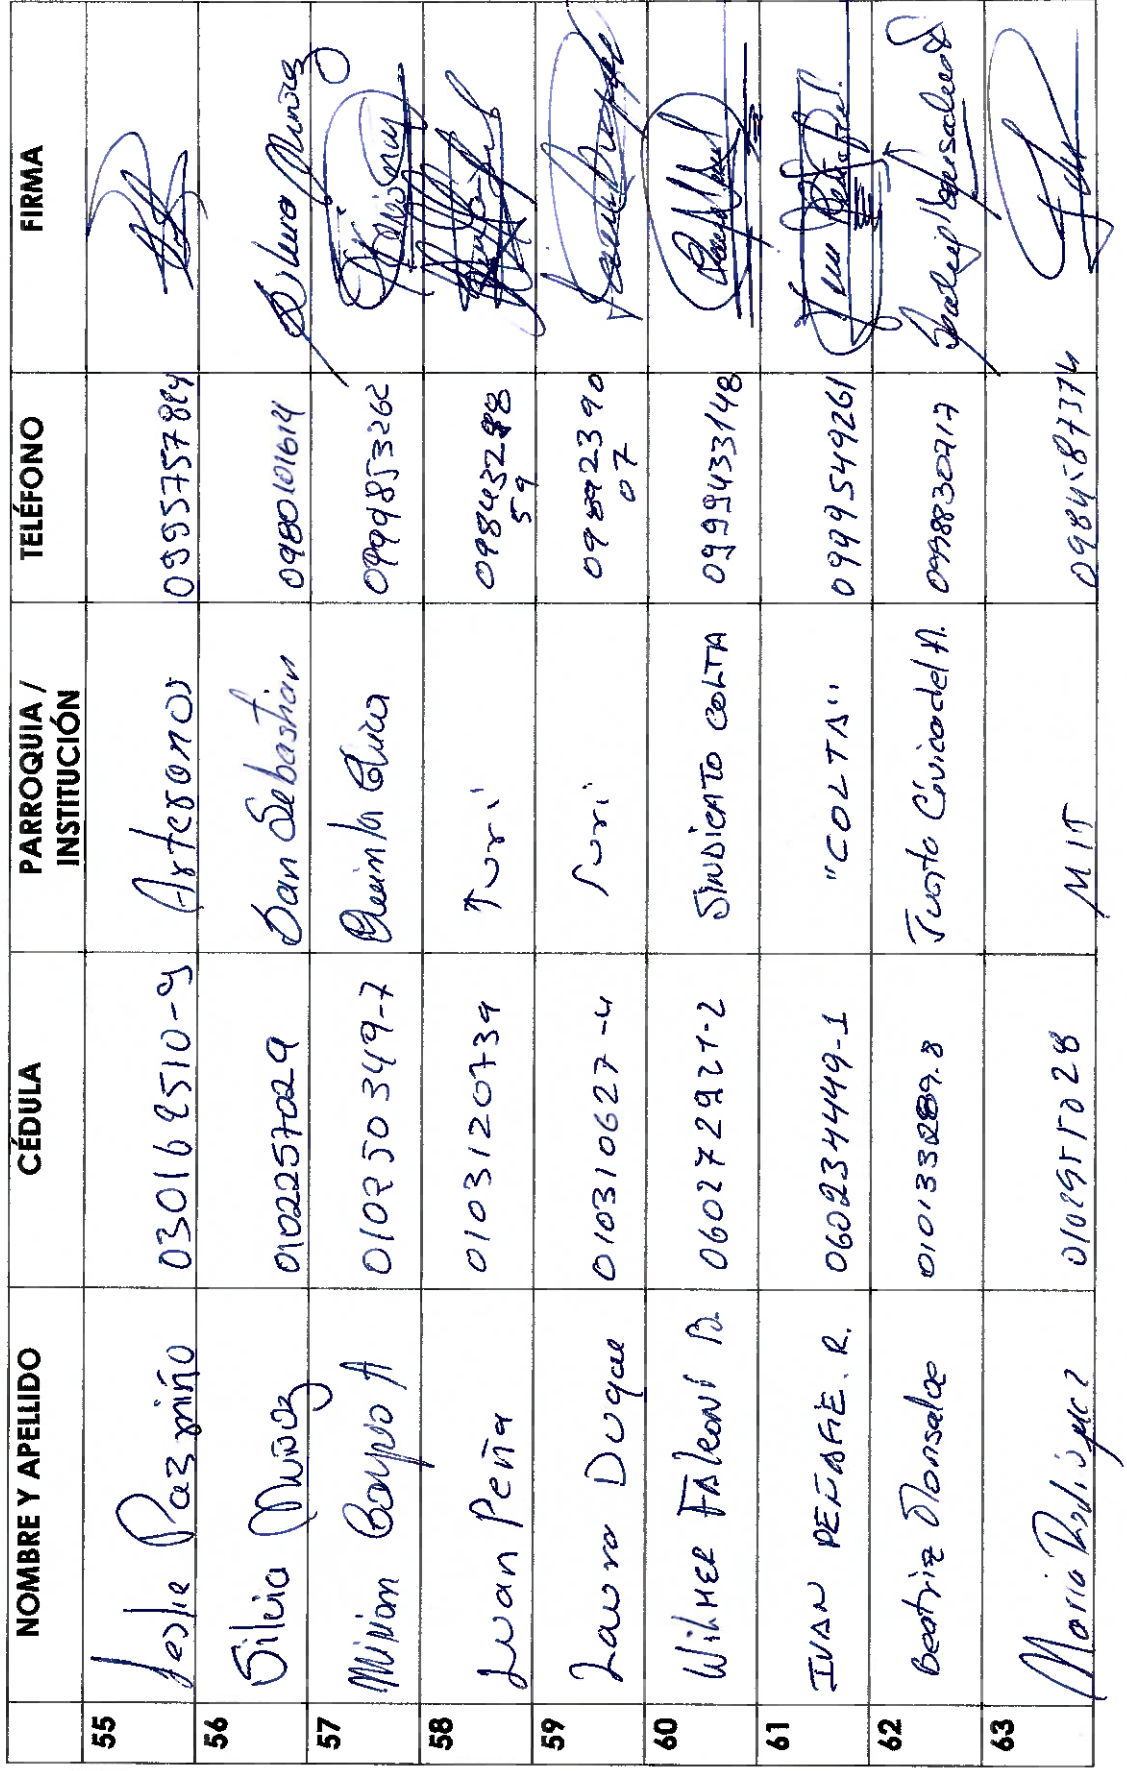 NOMBRE Y APELLIDO CÉDULA PARROQUIA / INSTITUCIÓN TELÉFONO FIRMA
55 Leslie Pazmiño 030162510-9 Artesanos 0995757844
56 Silvia Muñoz 0102257029 San Sebastian 0980101614 Silvia Muñoz
57 Miriam A 010250349-7 0999853262
58 Juan Peña 0103120739 Turi 0984328859
59 Laura Duque 010310627-4 Turi 07
60 Wilmer Falconí B. 060272921-2 SINDICATO COLTA 0999433148
61 IVAN PEÑAFIE. R. 060234449-1 "COLTA" 0999549261
62 Beatriz Monsalve 010133289.8 Junta Cívica del A. 0998830717
63 Maria Rodriguez 0102955028 MIT 0984587374